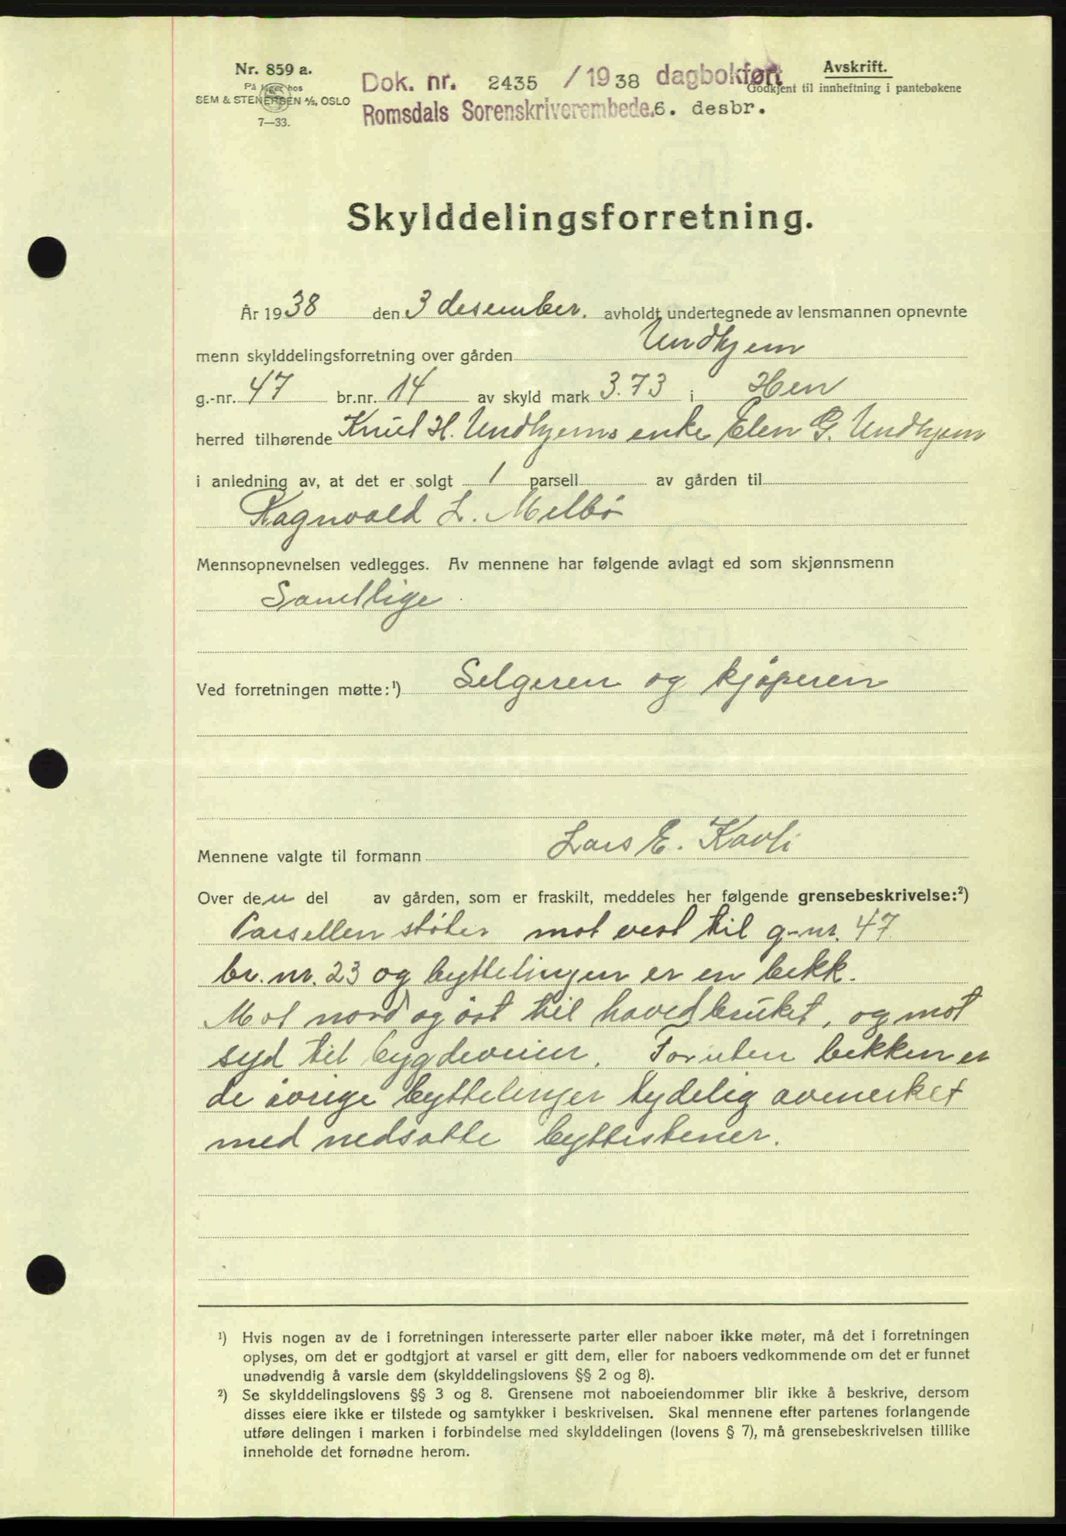 Nr. 859 a.
På lager hos
SEM & STENERSEN A/S, OSLO
7—33.
Dok. nr. 2435 / 1938 dagbokført
Romsdals Sorenskriverembede. 6. desbr.
Avskrift.
Godkjent til innheftning i pantebøkene
Skylddelingsforretning.
År 1938 den 3 desember. avholdt undertegnede av lensmannen opnevnte
menn skylddelingsforretning over gården Undhjem
g.-nr. 47 br.nr. 14 av skyld mark 3.73 i Hen
herred tilhørende Knut H. Undhjems enke Elen G. Undhjem
i anledning av, at det er solgt 1 parsell av gården til
Ragnvald L. Melbø
Mennsopnevnelsen vedlegges. Av mennene har følgende avlagt ed som skjønnsmenn
Samtlige
Ved forretningen møtte:¹) Selgeren og kjøperen
Mennene valgte til formann Lars E. Kavli
Over den del av gården, som er fraskilt, meddeles her følgende grensebeskrivelse:²)
Parsellen støter mot vest til g-nr. 47
br. nr. 23 og byttelingen er en bekk.
Mot nord og öst til hovedbruket, og mot
syd til bygdeveien. Foruten bekken er
de övrige byttelinjer tydelig avmerket
med nedsatte byttestener.
¹) Hvis nogen av de i forretningen interesserte parter eller naboer ikke møter, må det i forretningen
oplyses, om det er godtgjort at varsel er gitt dem, eller for naboers vedkommende om det er funnet
unødvendig å varsle dem (skylddelingslovens §§ 2 og 8).
²) Se skylddelingslovens §§ 3 og 8. Grensene mot naboeiendommer blir ikke å beskrive, dersom
disses eiere ikke er tilstede og samtykker i beskrivelsen. Skal mennene efter partenes forlangende
utføre delingen i marken i forbindelse med skylddelingen (lovens § 7), må grensebeskrivelsen tillike
inneholde det fornødne herom.